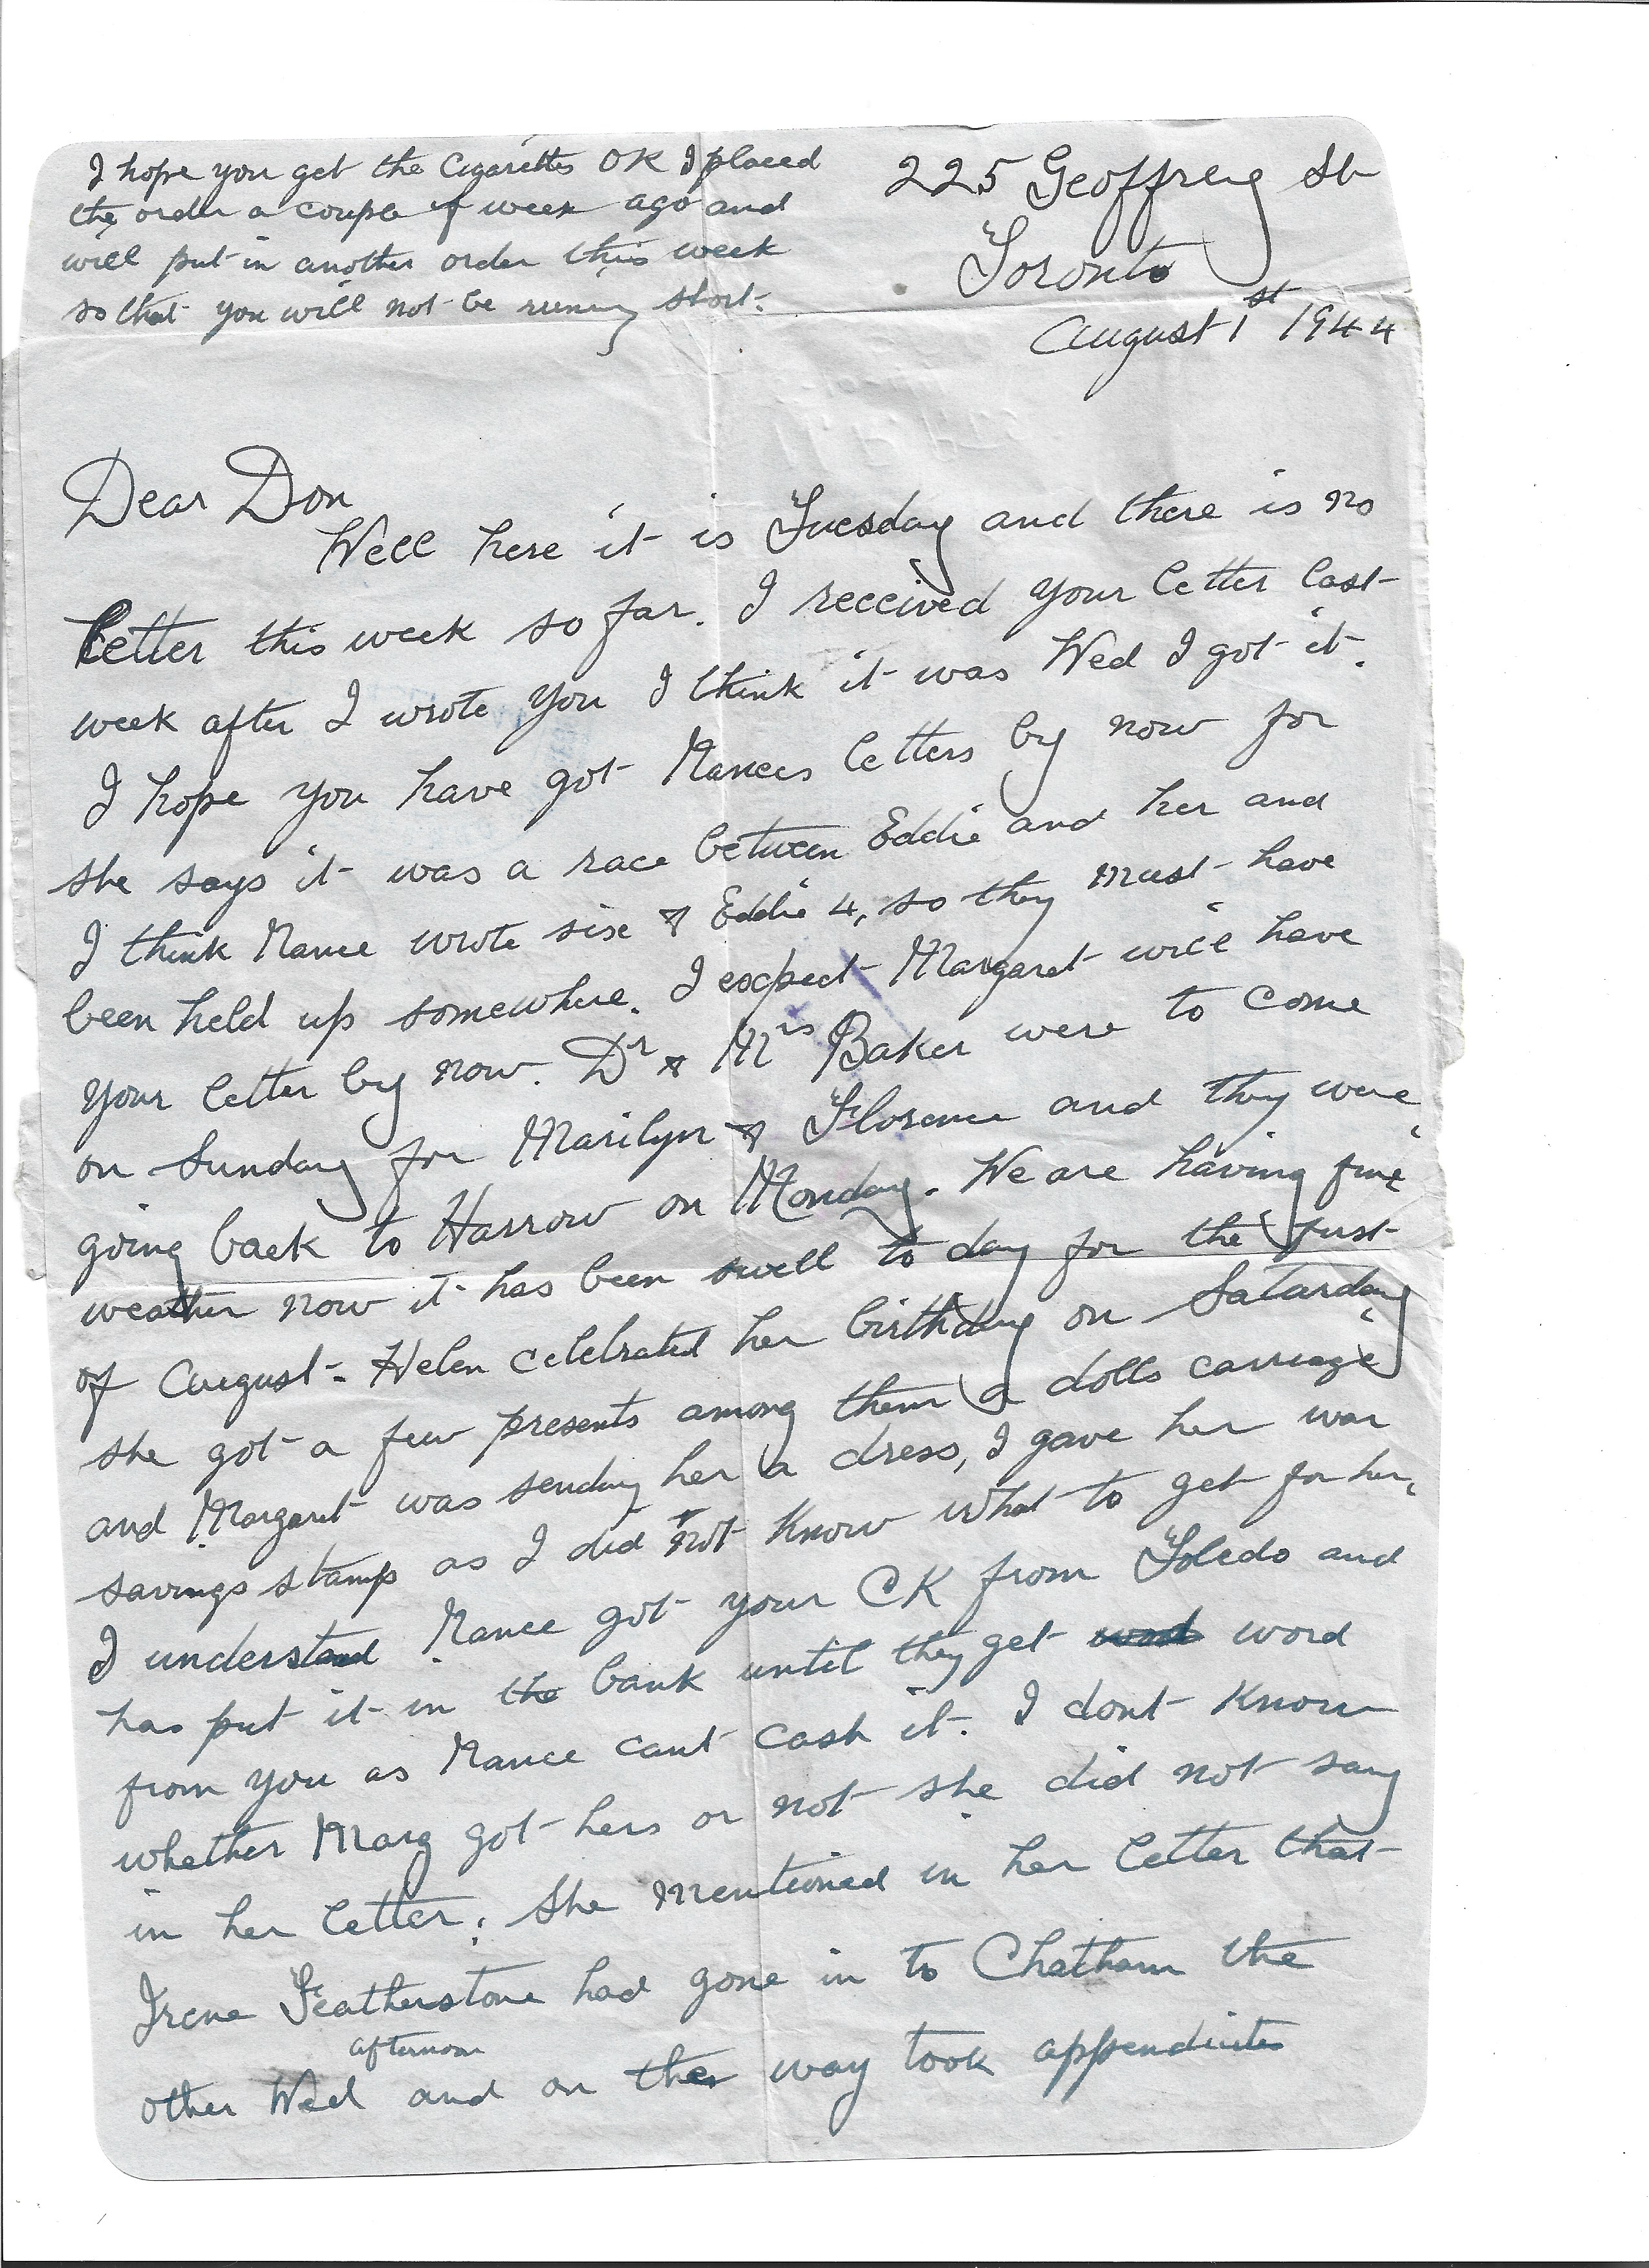 I hope you get the Cigarettes OK I placed
the order a couple of week ago and
will put in another order this week
so that you will not be runing short.
225 Geoffrey St
Toronto
August 1st 1944
Dear Don
Well here it is Tuesday and there is no
letter this week so far. I received your letter last
week after I wrote you I think it was Wed I got it.
I hope you have got Nances letters by now for
she says it was a race between Eddie and her and
I think Nance wrote six & Eddie 4, so they must have
been held up somewhere. I expect Margaret will have
your letter by now. Dr & Mrs Baker were to come
on Sunday for Marilyn & Florence and they were
going back to Harrow on Monday. We are having fine
weather now it has been swell to day for the first
of August. Helen celebrated her birthday on Saturday
she got a few presents among them a dolls carriage
and Margaret was sending her a dress, I gave her war
savings stamps as I did not know what to get for her,
I understand Nance got your CK from Toledo and
has put it in the bank until they get word
from you as Nance cant cash it. I dont know
whether Marg got hers or not she did not say
in her letter. She mentioned in her letter that
Irene Featherstone had gone in to Chatham the
afternoon
other Wed and on the way took appendicites